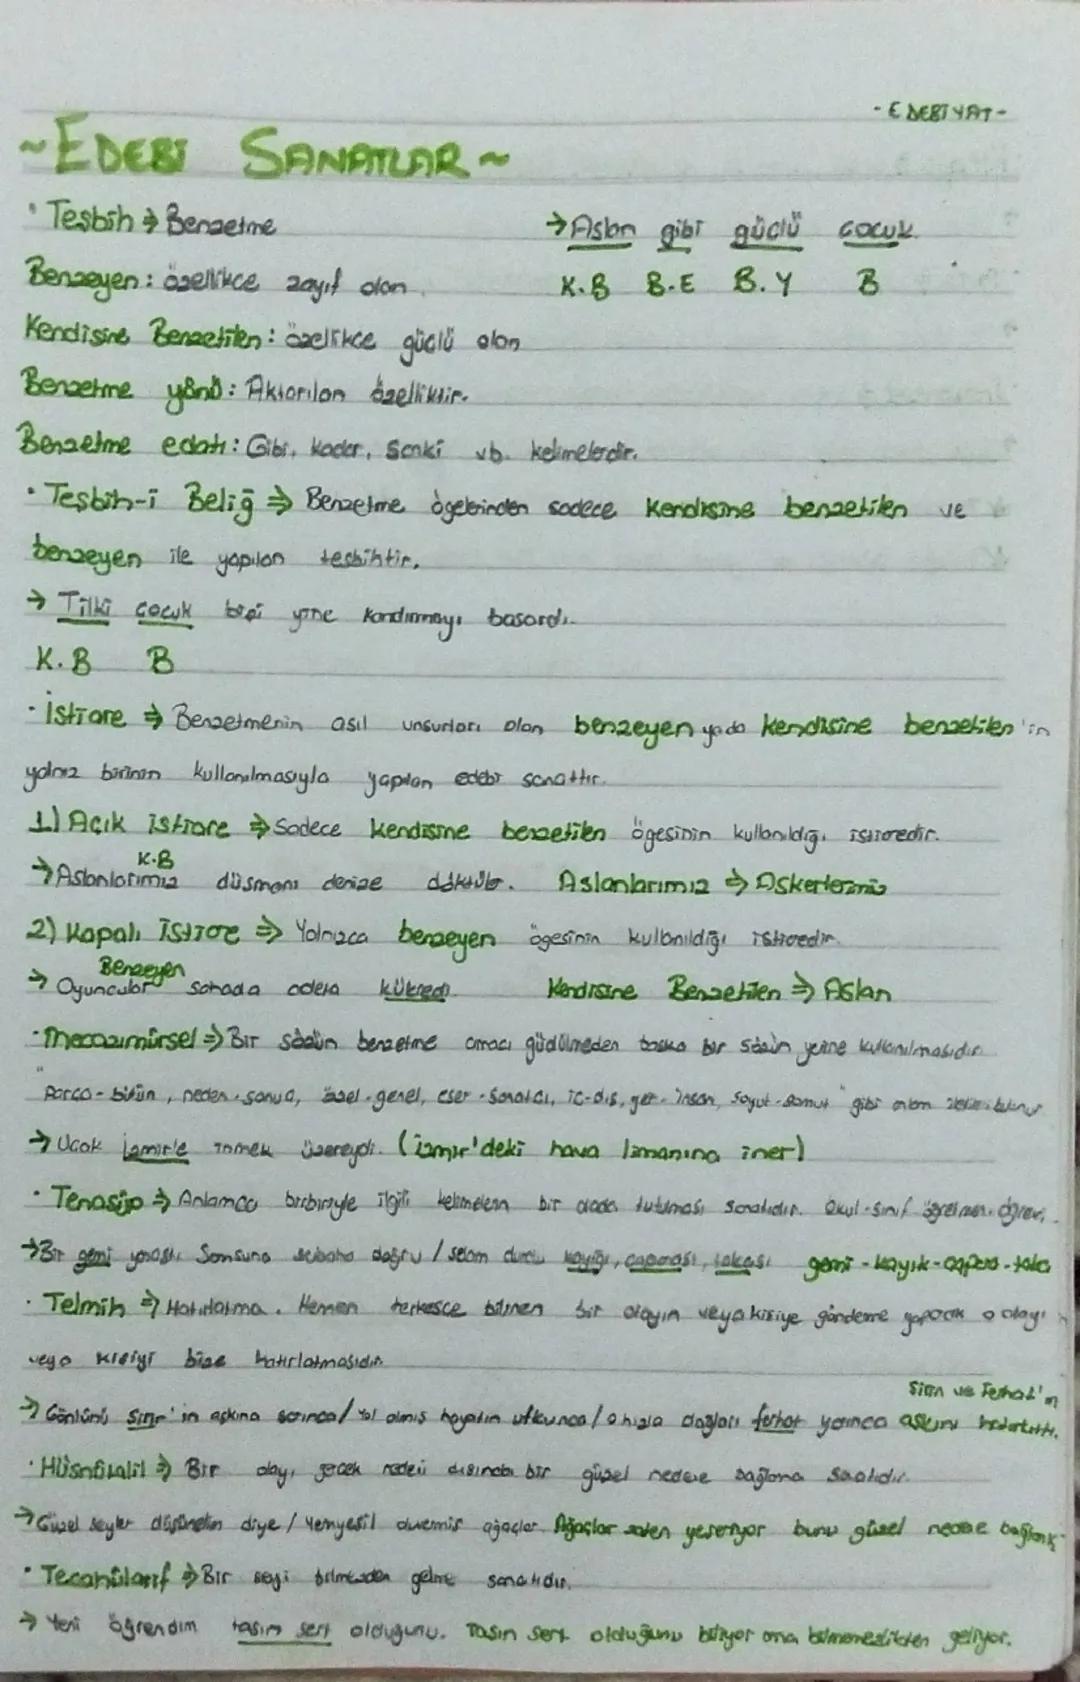 - EDEBİYAT -
~ EDEBİ SANATLAR ~
• Teşbih ⇒ Benzetme → Aslan gibi güçlü çocuk
Benzeyen: özellikce zayıf olan. K.B B.E B.Y B
Kendisine Benzetilen: özelikce güçlü olan
Benzetme yönü: Aktarılan özelliktir.
Benzetme edatı: Gibi, kadar, Sanki vb. kelimelerdir.
• Teşbih-i Beliğ ⇒ Benzetme ögelerinden sadece kendisine benzetilen ve
benzeyen ile yapılan teşbihtir.
→ Tilki çocuk bizi yine kandırmayı başardı.
K.B B
• İstiare ⇒ Benzetmenin asıl unsurları olan benzeyen ya da kendisine benzetilen'in
yalnız birinin kullanılmasıyla yapılan edebi sanattır.
1) Açık istiare ⇒ Sadece kendisine benzetilen ögesinin kullanıldığı istiaredir.
K.B
→ Aslanlarımız düşmanı denize döktüler. Aslanlarımız ⇒ Askerlerimiz
2) Kapalı İstiare ⇒ Yalnızca benzeyen ögesinin kullanıldığı istiaredir.
Benzeyen
→ Oyuncular sahada adeta kükredi. Kendisine Benzetilen ⇒ Aslan
• Mecazımürsel ⇒ Bir sözün benzetme amacı güdülmeden başka bir sözün yerine kullanılmasıdır.
"Parça - bütün, neden - sonuç, özel - genel, eser - Sanatçı, iç - dış, yer - insan, Soyut - Somut" gibi anlam
→ Uçak İzmir'e inmek üzereydi. (İzmir'deki hava limanına iner)
• Tenasüp ⇒ Anlamca birbiriyle ilgili kelimelerin bir arada tutulması sanatıdır. Okul - Sınıf öğretmen - öğrenci.
→ Bir gemi yanaştı Samsuna sabaha doğru / selam durdu kayığı, çaparası, takası gemi - kayık - çapara - taka
• Telmih ⇒ Hatırlatma. Hemen herkesce bilinen bir olayın veya kişiye gönderme yaparak o olayı
veya kişiyi bize hatırlatmasıdır.
Şirin ve Ferhat'ın
→ Gönlünü Şirin'in aşkına sarınca / Yol almış hayatın ufkunca / O hızla dağları ferhat yarınca aşkını hatırlattı.
• Hüsnütalil ⇒ Bir olayı gerçek nedeni dışında bir güzel nedene bağlama sanatıdır.
→ Güzel şeyler düşünelim diye / Yemyeşil oluvermiş ağaçlar. Ağaçlar zaten yeşeriyor bunu güzel nedene bağlamış
• Tecahülarif ⇒ Bir şeyi bilmezden gelme sanatıdır.
→ Yeni öğrendim taşın sert olduğunu. Taşın sert olduğunu biliyor ama bilmemezlikten geliyor.